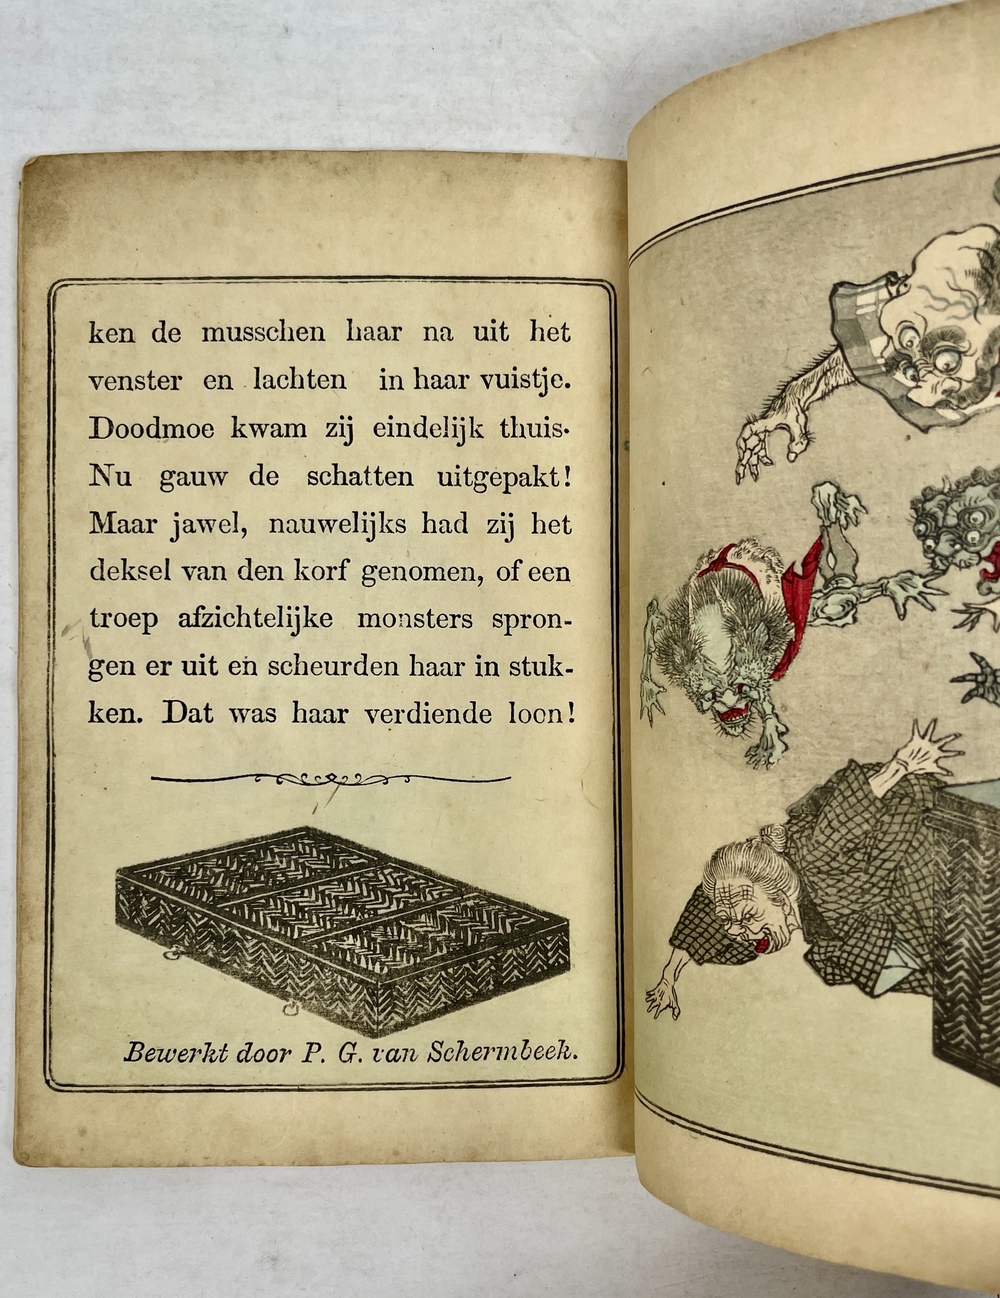 ken de musschen haar na uit het
venster en lachten in haar vuistje.
Doodmoe kwam zij eindelijk thuis.
Nu gauw de schatten uitgepakt!
Maar jawel, nauwelijks had zij het
deksel van den korf genomen, of een
troep afzichtelijke monsters spron-
gen er uit en scheurden haar in stuk-
ken. Dat was haar verdiende loon!
Bewerkt door P. G. van Schermbeek.